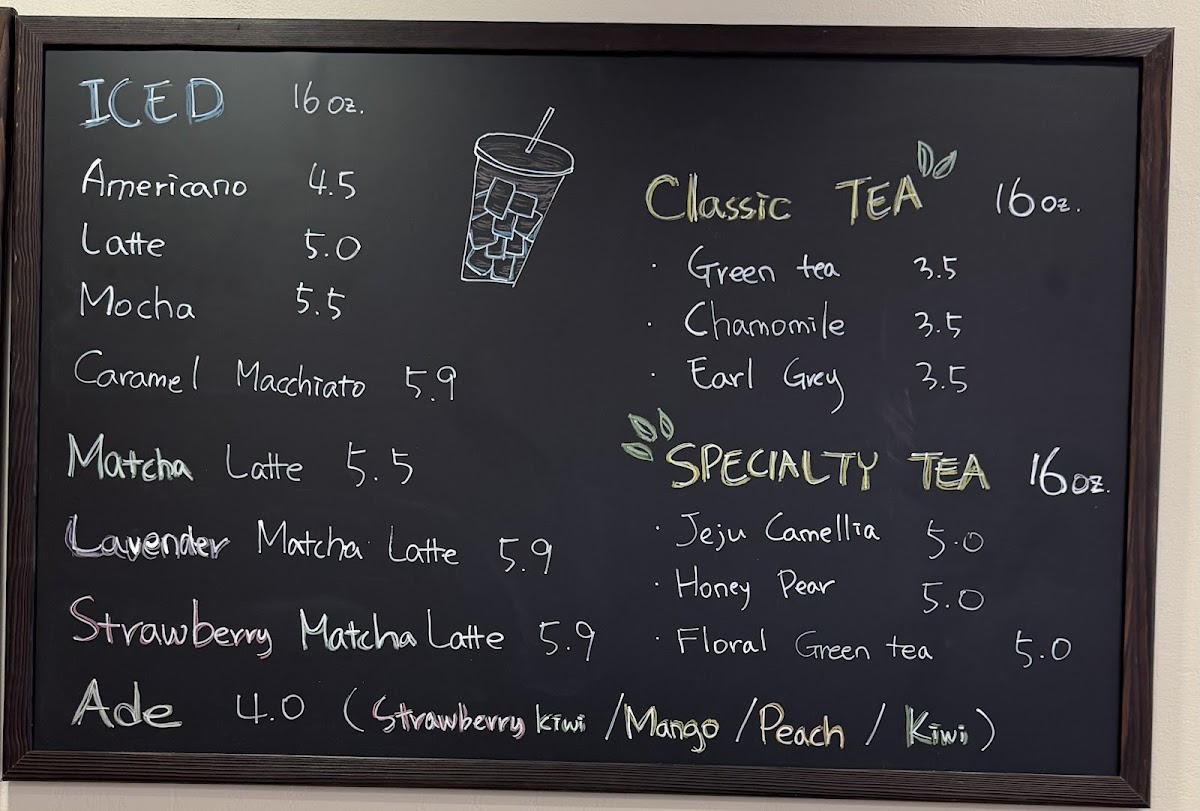 ICED 16 oz.
Americano 4.5
Latte 5.0
Mocha 5.5
Caramel Macchiato 5.9
Matcha Latte 5.5
Lavender Matcha Latte 5.9
Strawberry Matcha Latte 5.9
Ade 4.0 (Strawberry kiwi / Mango / Peach / Kiwi)
Classic TEA 16 oz.
· Green tea 3.5
· Chamomile 3.5
· Earl Grey 3.5
SPECIALTY TEA 16 oz.
· Jeju Camellia 5.0
· Honey Pear 5.0
· Floral Green tea 5.0